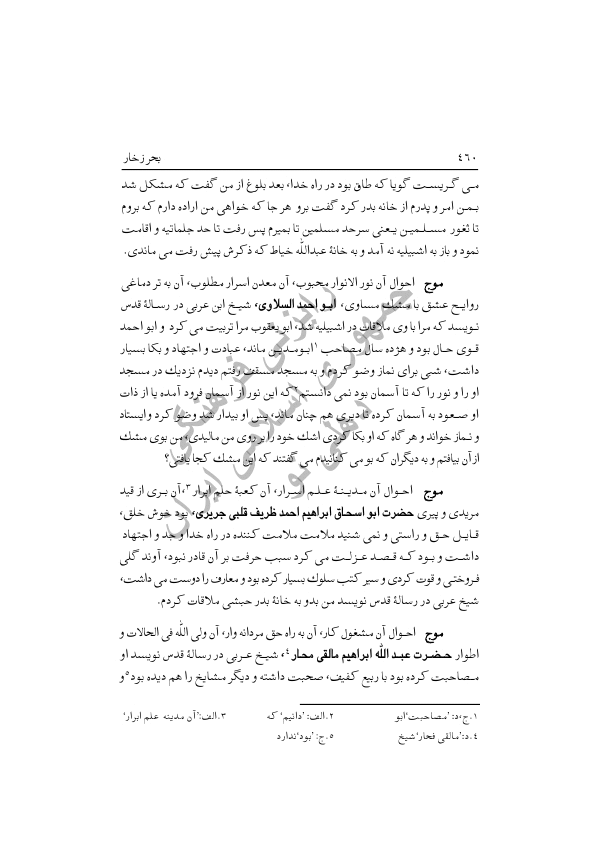 ٤٦٠
بحر زخار
می گریست گویا که طاق بود در راه خدا، بعد بلوغ از من گفت که مشکل شد
بمن امر و پدرم از خانه بدر کرد گفت برو هر جا که خواهی من اراده دارم که بروم
تا ثغور مسلمین یعنی سرحد مسلمین تا بمیرم پس رفت تا حد جلماتیه و اقامت
نمود و باز به اشبیلیه نه آمد و به خانۀ عبدالله خیاط که ذکرش پیش رفت می ماندی.
موج احوال آن نور الانوار محبوب، آن معدن اسرار مطلوب، آن به تر دماغی
روایح عشق با مشک مساوی، ابو احمد السلاوی، شیخ ابن عربی در رسالۀ قدس
نویسد که مرا با وی ملاقات در اشبیلیه شد، ابو یعقوب مرا تربیت می کرد و ابو احمد
قوی حال بود و هژده سال مصاحب ١ابومدین ماند، عبادت و اجتهاد و بکا بسیار
داشت، شبی برای نماز وضو کردم و به مسجد مسقف رفتم دیدم نزدیک در مسجد
او را و نور را که تا آسمان بود نمی دانستم٢که این نور از آسمان فرود آمده یا از ذات
او صعود به آسمان کرده تا دیری هم چنان ماند، پس او بیدار شد وضو کرد وایستاد
و نماز خواند و هر گاه که او بکا کردی اشک خود را بر روی من مالیدی، من بوی مشک
از آن بیافتم و به دیگران که بو می کنانیدم می گفتند که این مشک کجا یافتی؟
موج احوال آن مدینۀ علم اسرار، آن کعبۀ حلم ابرار٣،آن بری از قید
مریدی و پیری حضرت ابو اسحاق ابراهیم احمد ظریف قلبی جریری، بود خوش خلق،
قایل حق و راستی و نمی شنید ملامت ملامت کننده در راه خدا و جد و اجتهاد
داشت و بود که قصد عزلت می کرد سبب حرفت بر آن قادر نبود، آوند گلی
فروختی و قوت کردی و سیر کتب سلوک بسیار کرده بود و معارف را دوست می داشت،
شیخ عربی در رسالۀ قدس نویسد من بدو به خانۀ بدر حبشی ملاقات کردم.
موج احوال آن مشغول کار، آن به راه حق مردانه وار، آن ولی الله فی الحالات و
اطوار حضرت عبد الله ابراهیم مالقی محار٤، شیخ عربی در رسالۀ قدس نویسد او
مصاحبت کرده بود با ربیع کفیف، صحبت داشته و دیگر مشایخ را هم دیده بود٥و
١.ج،د: 'مصاحبت'ابو
٢.الف: 'دانیم' که
٣.الف:'آن مدینه علم ابرار'
٤.د:'مالقی فخار'شیخ
٥.ج: 'بود'ندارد